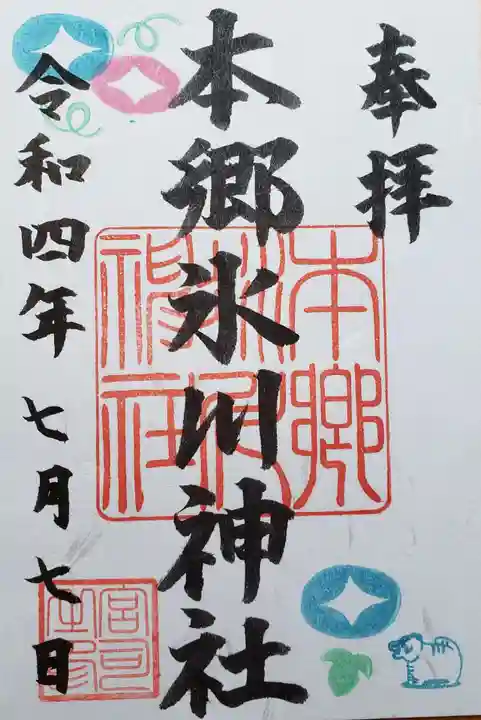 奉拝
本郷氷川神社
令和四年七月七日
本郷
氷川
神社
宮司
之印